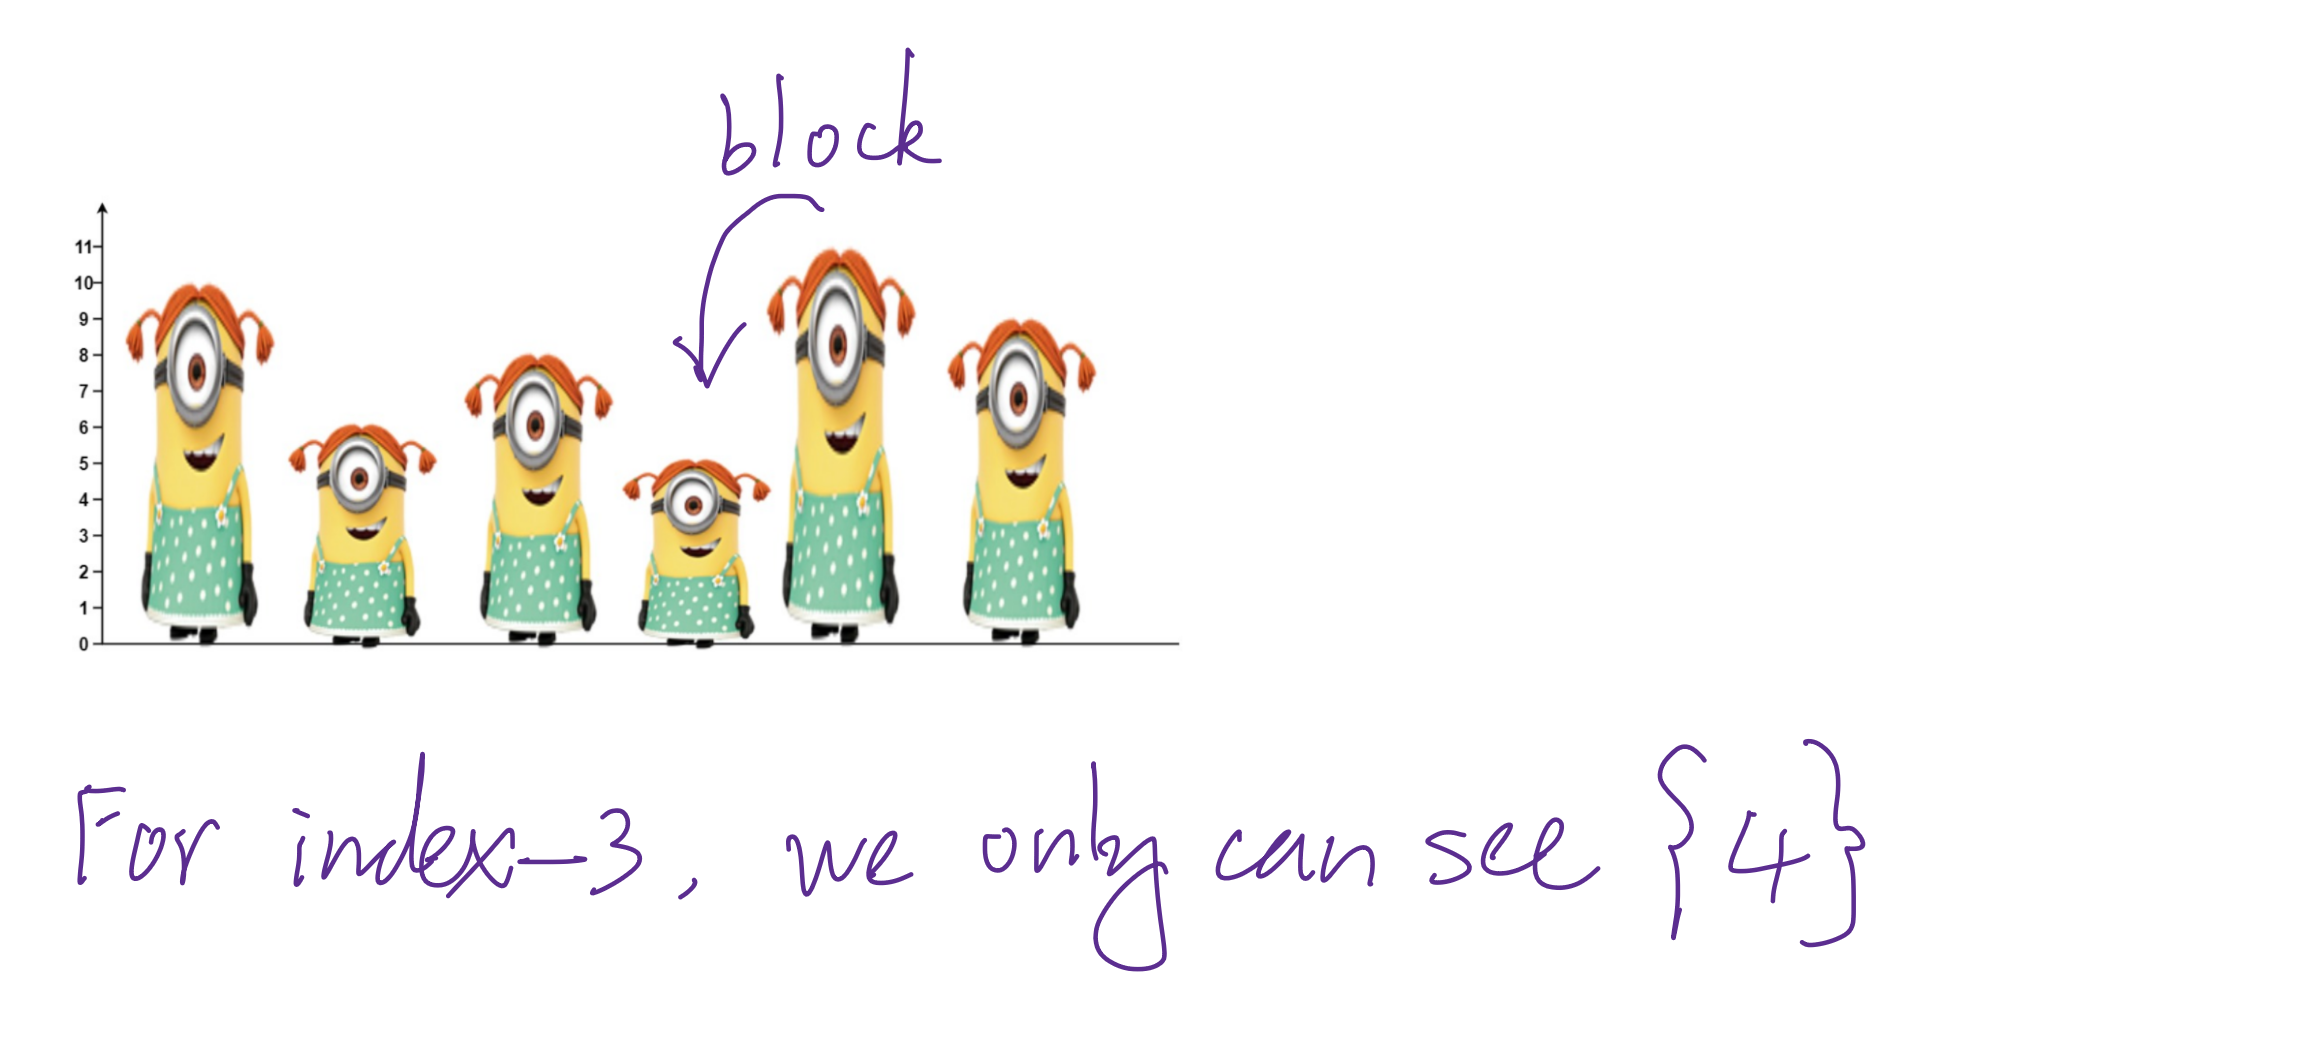 block
11
10
9
8
7
6
5
4
3
2
1
0
For index-3, we only can see {4}